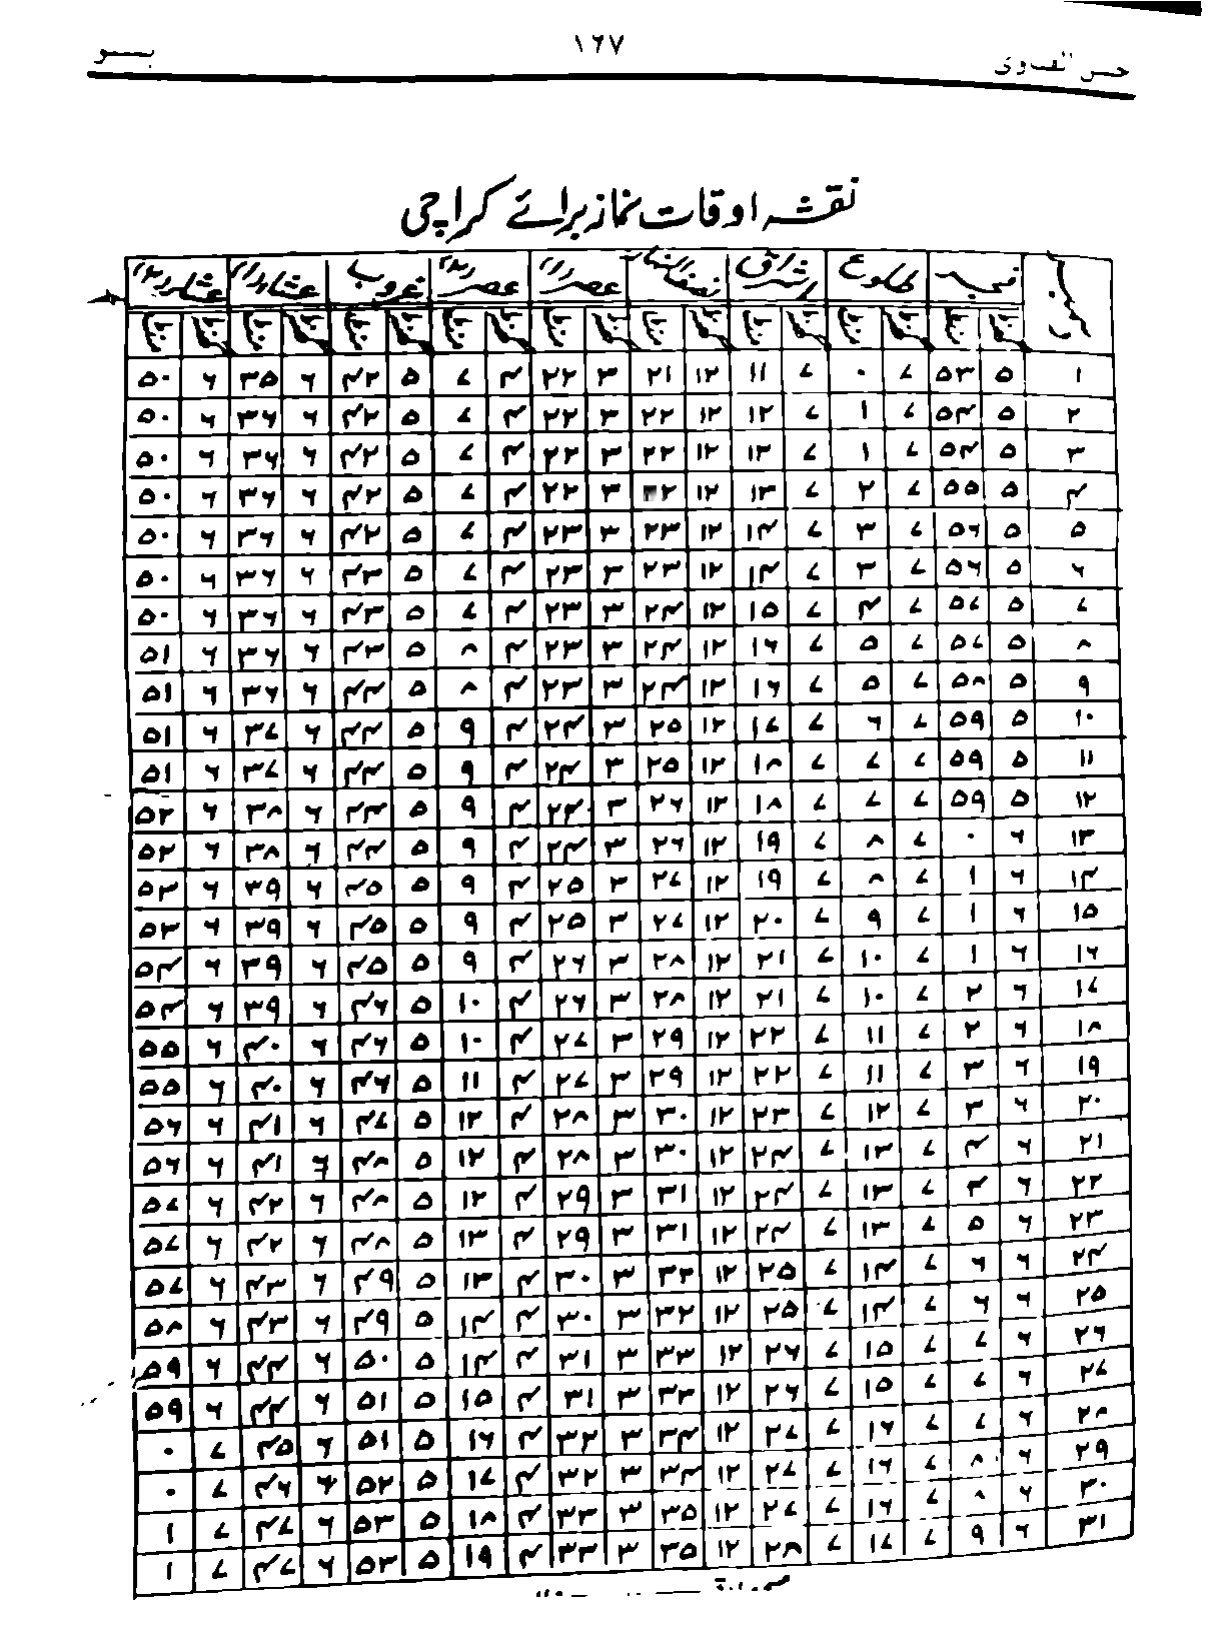 حسن الفتاوى ۱۶۷
نقشہ اوقات نماز برائے کراچی
فجر طلوع اشراق نصف النہار عصر (۱) عصر (۲) غروب عشاء (۱) عشاء (۲)
۱ ۵ ۵۳ ۷ ۰ ۷ ۱۱ ۱۲ ۲۱ ۳ ۲۲ ۴ ۷ ۵ ۴۲ ۶ ۳۵ ۶ ۵۰
۲ ۵ ۵۴ ۷ ۱ ۷ ۱۲ ۱۲ ۲۲ ۳ ۲۲ ۴ ۷ ۵ ۴۲ ۶ ۳۶ ۶ ۵۰
۳ ۵ ۵۴ ۷ ۱ ۷ ۱۳ ۱۲ ۲۲ ۳ ۲۲ ۴ ۷ ۵ ۴۲ ۶ ۳۶ ۶ ۵۰
۴ ۵ ۵۵ ۷ ۲ ۷ ۱۳ ۱۲ ۲۲ ۳ ۲۲ ۴ ۷ ۵ ۴۲ ۶ ۳۶ ۶ ۵۰
۵ ۵ ۵۶ ۷ ۳ ۷ ۱۴ ۱۲ ۲۳ ۳ ۲۳ ۴ ۷ ۵ ۴۲ ۶ ۳۶ ۶ ۵۰
۶ ۵ ۵۶ ۷ ۳ ۷ ۱۴ ۱۲ ۲۳ ۳ ۲۳ ۴ ۷ ۵ ۴۳ ۶ ۳۶ ۶ ۵۰
۷ ۵ ۵۷ ۷ ۴ ۷ ۱۵ ۱۲ ۲۴ ۳ ۲۳ ۴ ۷ ۵ ۴۳ ۶ ۳۶ ۶ ۵۰
۸ ۵ ۵۷ ۷ ۵ ۷ ۱۶ ۱۲ ۲۴ ۳ ۲۳ ۴ ۸ ۵ ۴۳ ۶ ۳۶ ۶ ۵۱
۹ ۵ ۵۸ ۷ ۵ ۷ ۱۶ ۱۲ ۲۴ ۳ ۲۳ ۴ ۸ ۵ ۴۴ ۶ ۳۶ ۶ ۵۱
۱۰ ۵ ۵۹ ۷ ۶ ۷ ۱۷ ۱۲ ۲۵ ۳ ۲۴ ۴ ۹ ۵ ۴۴ ۶ ۳۷ ۶ ۵۱
۱۱ ۵ ۵۹ ۷ ۷ ۷ ۱۸ ۱۲ ۲۵ ۳ ۲۴ ۴ ۹ ۵ ۴۴ ۶ ۳۷ ۶ ۵۱
۱۲ ۵ ۵۹ ۷ ۷ ۷ ۱۸ ۱۲ ۲۶ ۳ ۲۴ ۴ ۹ ۵ ۴۴ ۶ ۳۸ ۶ ۵۲
۱۳ ۶ ۰ ۷ ۸ ۷ ۱۹ ۱۲ ۲۶ ۳ ۲۴ ۴ ۹ ۵ ۴۴ ۶ ۳۸ ۶ ۵۲
۱۴ ۶ ۱ ۷ ۸ ۷ ۱۹ ۱۲ ۲۷ ۳ ۲۵ ۴ ۹ ۵ ۴۵ ۶ ۳۹ ۶ ۵۳
۱۵ ۶ ۱ ۷ ۹ ۷ ۲۰ ۱۲ ۲۷ ۳ ۲۵ ۴ ۹ ۵ ۴۵ ۶ ۳۹ ۶ ۵۳
۱۶ ۶ ۱ ۷ ۱۰ ۷ ۲۱ ۱۲ ۲۸ ۳ ۲۶ ۴ ۹ ۵ ۴۵ ۶ ۳۹ ۶ ۵۴
۱۷ ۶ ۲ ۷ ۱۰ ۷ ۲۱ ۱۲ ۲۸ ۳ ۲۶ ۴ ۱۰ ۵ ۴۶ ۶ ۳۹ ۶ ۵۴
۱۸ ۶ ۲ ۷ ۱۱ ۷ ۲۲ ۱۲ ۲۹ ۳ ۲۷ ۴ ۱۰ ۵ ۴۶ ۶ ۴۰ ۶ ۵۵
۱۹ ۶ ۳ ۷ ۱۱ ۷ ۲۲ ۱۲ ۲۹ ۳ ۲۷ ۴ ۱۱ ۵ ۴۶ ۶ ۴۰ ۶ ۵۵
۲۰ ۶ ۳ ۷ ۱۲ ۷ ۲۳ ۱۲ ۳۰ ۳ ۲۸ ۴ ۱۲ ۵ ۴۷ ۶ ۴۱ ۶ ۵۶
۲۱ ۶ ۴ ۷ ۱۳ ۷ ۲۴ ۱۲ ۳۰ ۳ ۲۸ ۴ ۱۲ ۵ ۴۸ ۶ ۴۱ ۶ ۵۶
۲۲ ۶ ۴ ۷ ۱۳ ۷ ۲۴ ۱۲ ۳۱ ۳ ۲۹ ۴ ۱۲ ۵ ۴۸ ۶ ۴۲ ۶ ۵۷
۲۳ ۶ ۵ ۷ ۱۳ ۷ ۲۴ ۱۲ ۳۱ ۳ ۲۹ ۴ ۱۳ ۵ ۴۸ ۶ ۴۲ ۶ ۵۷
۲۴ ۶ ۶ ۷ ۱۴ ۷ ۲۵ ۱۲ ۳۲ ۳ ۳۰ ۴ ۱۳ ۵ ۴۹ ۶ ۴۳ ۶ ۵۷
۲۵ ۶ ۶ ۷ ۱۴ ۷ ۲۵ ۱۲ ۳۲ ۳ ۳۰ ۴ ۱۴ ۵ ۴۹ ۶ ۴۳ ۶ ۵۸
۲۶ ۶ ۷ ۷ ۱۵ ۷ ۲۶ ۱۲ ۳۳ ۳ ۳۱ ۴ ۱۴ ۵ ۵۰ ۶ ۴۴ ۶ ۵۹
۲۷ ۶ ۷ ۷ ۱۵ ۷ ۲۶ ۱۲ ۳۳ ۳ ۳۱ ۴ ۱۵ ۵ ۵۱ ۶ ۴۴ ۶ ۵۹
۲۸ ۶ ۷ ۷ ۱۶ ۷ ۲۷ ۱۲ ۳۴ ۳ ۳۲ ۴ ۱۶ ۵ ۵۱ ۶ ۴۵ ۷ ۰
۲۹ ۶ ۸ ۷ ۱۶ ۷ ۲۷ ۱۲ ۳۴ ۳ ۳۲ ۴ ۱۷ ۵ ۵۲ ۶ ۴۶ ۷ ۰
۳۰ ۶ ۸ ۷ ۱۶ ۷ ۲۷ ۱۲ ۳۵ ۳ ۳۳ ۴ ۱۸ ۵ ۵۳ ۶ ۴۷ ۷ ۱
۳۱ ۶ ۹ ۷ ۱۷ ۷ ۲۸ ۱۲ ۳۵ ۳ ۳۳ ۴ ۱۹ ۵ ۵۳ ۶ ۴۷ ۷ ۱